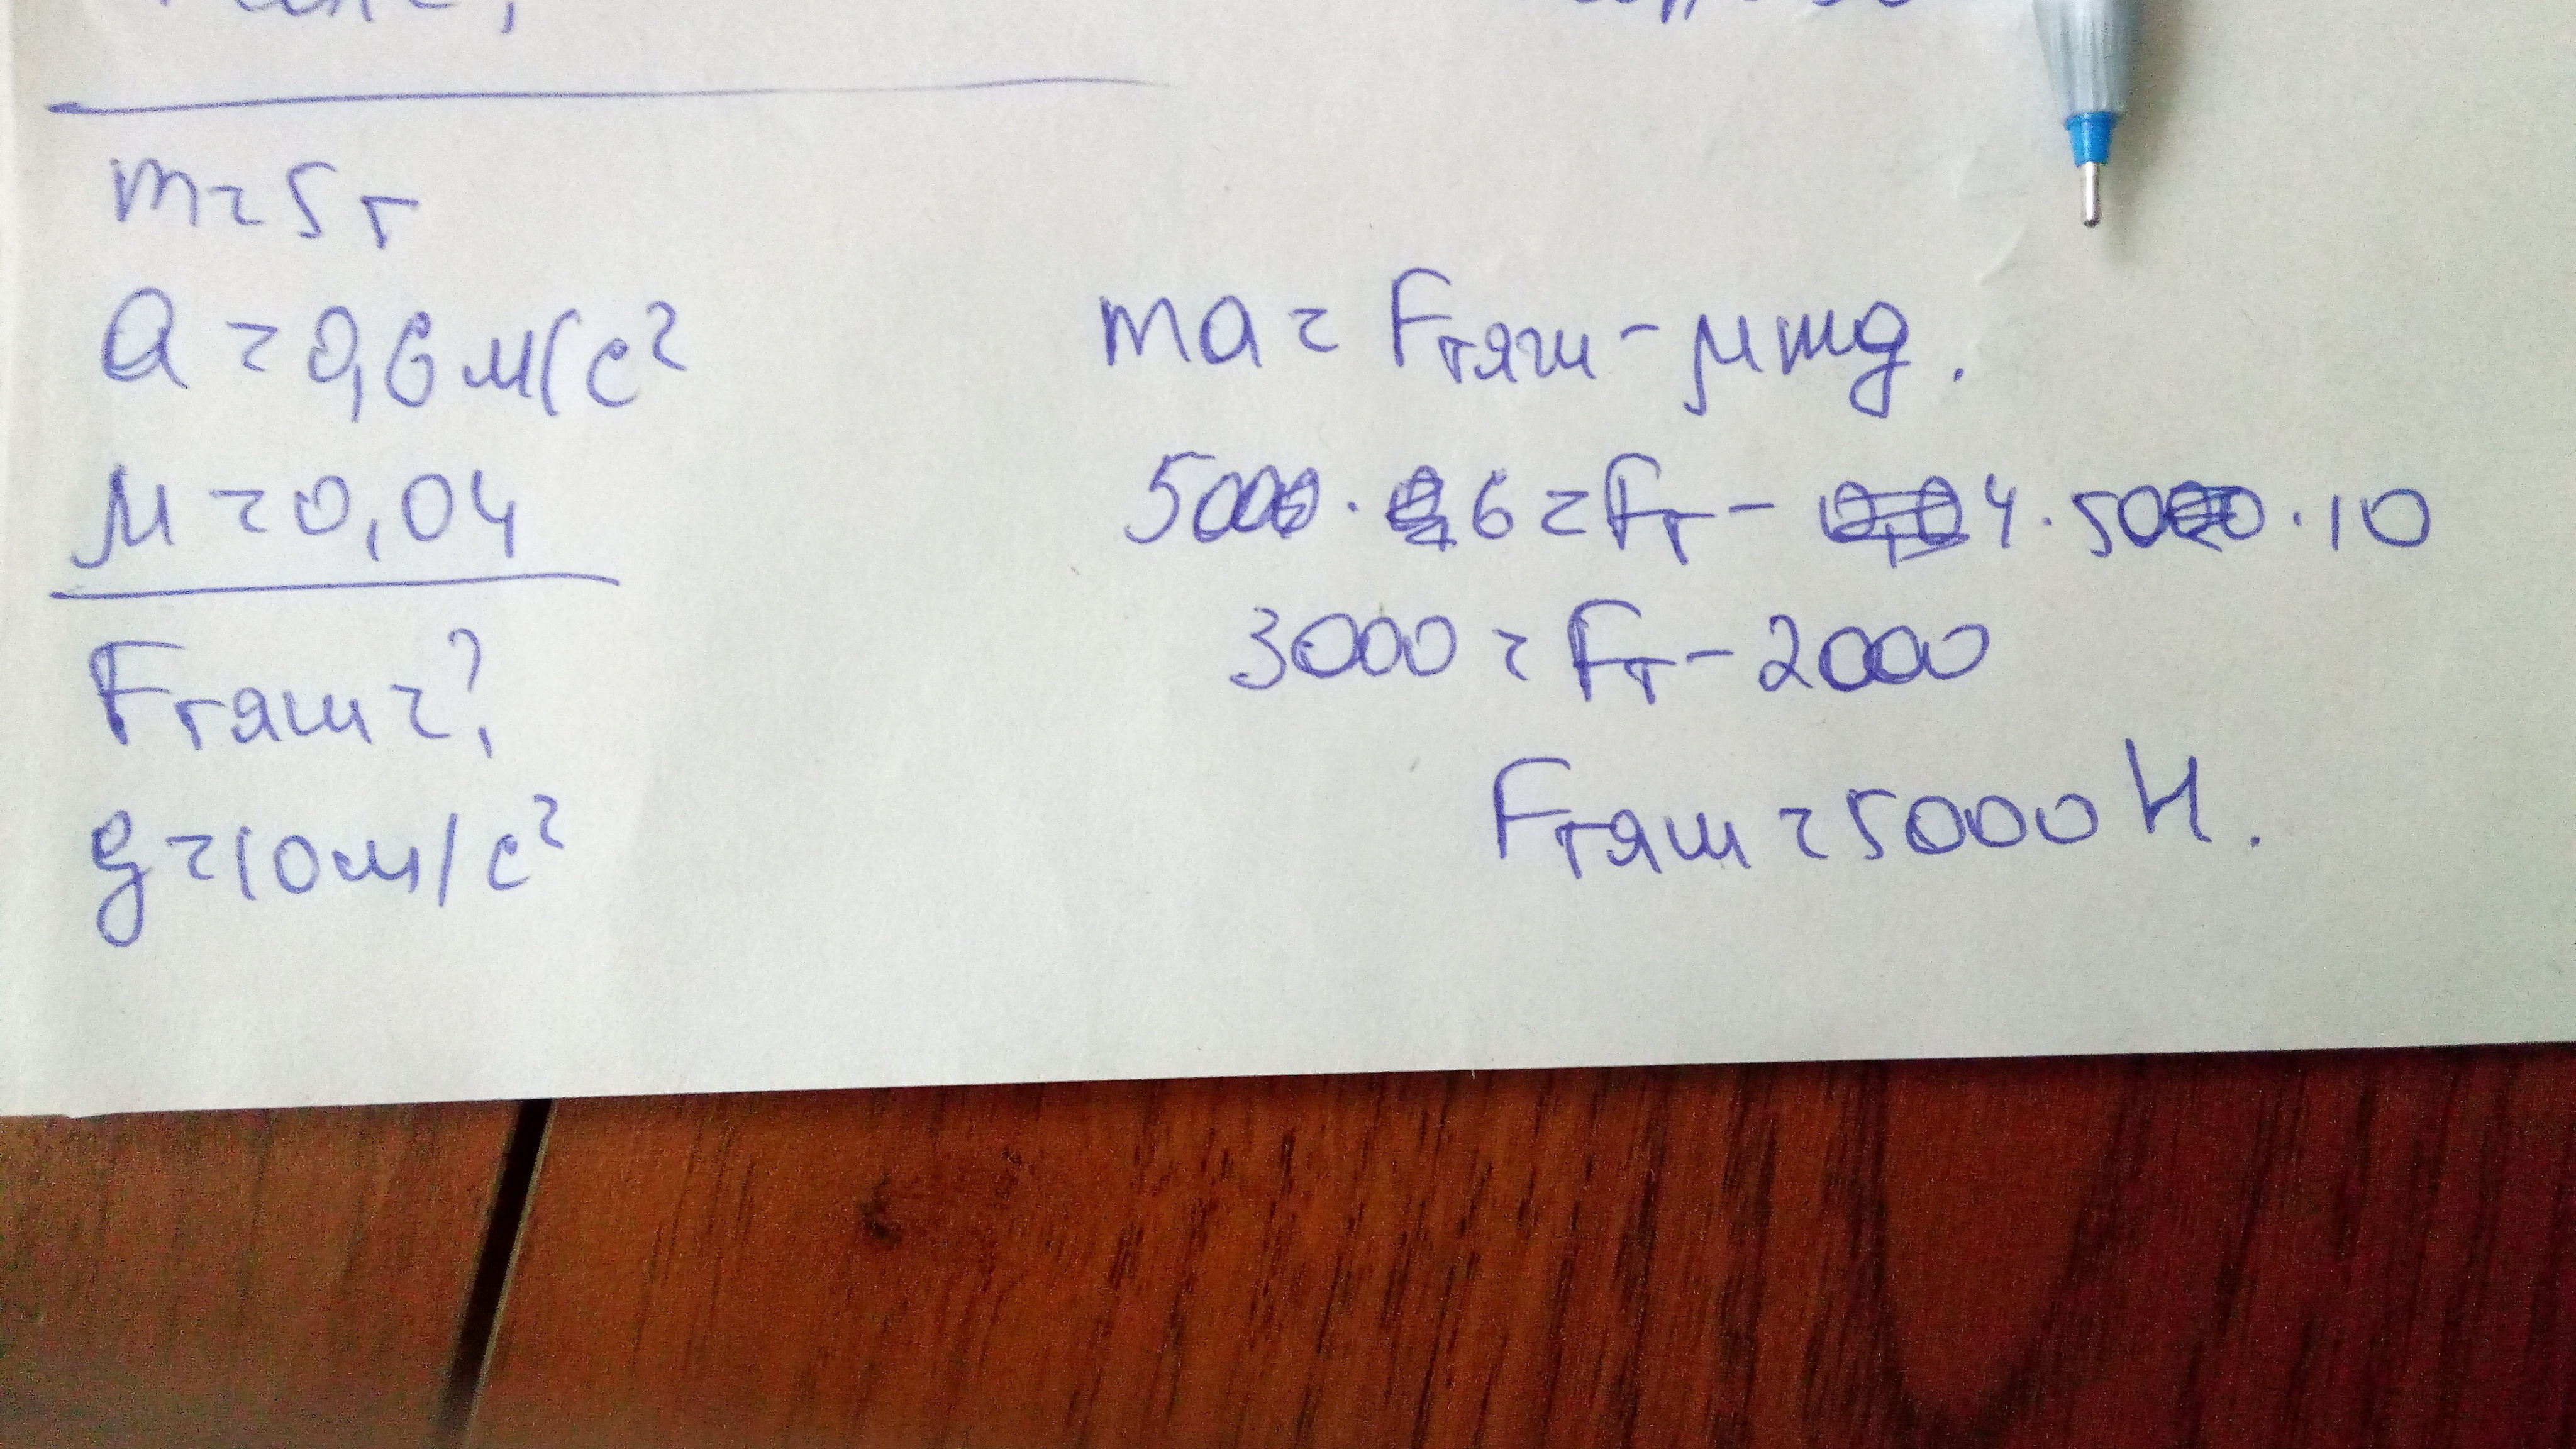 m = 5 т
a = 0,6 м/с²
μ = 0,04
Fтяги = ?
g = 10 м/с²
ma = Fтяги - μmg.
5000 · 0,6 = Fт - 0,04 · 5000 · 10
3000 = Fт - 2000
Fтяги = 5000 Н.